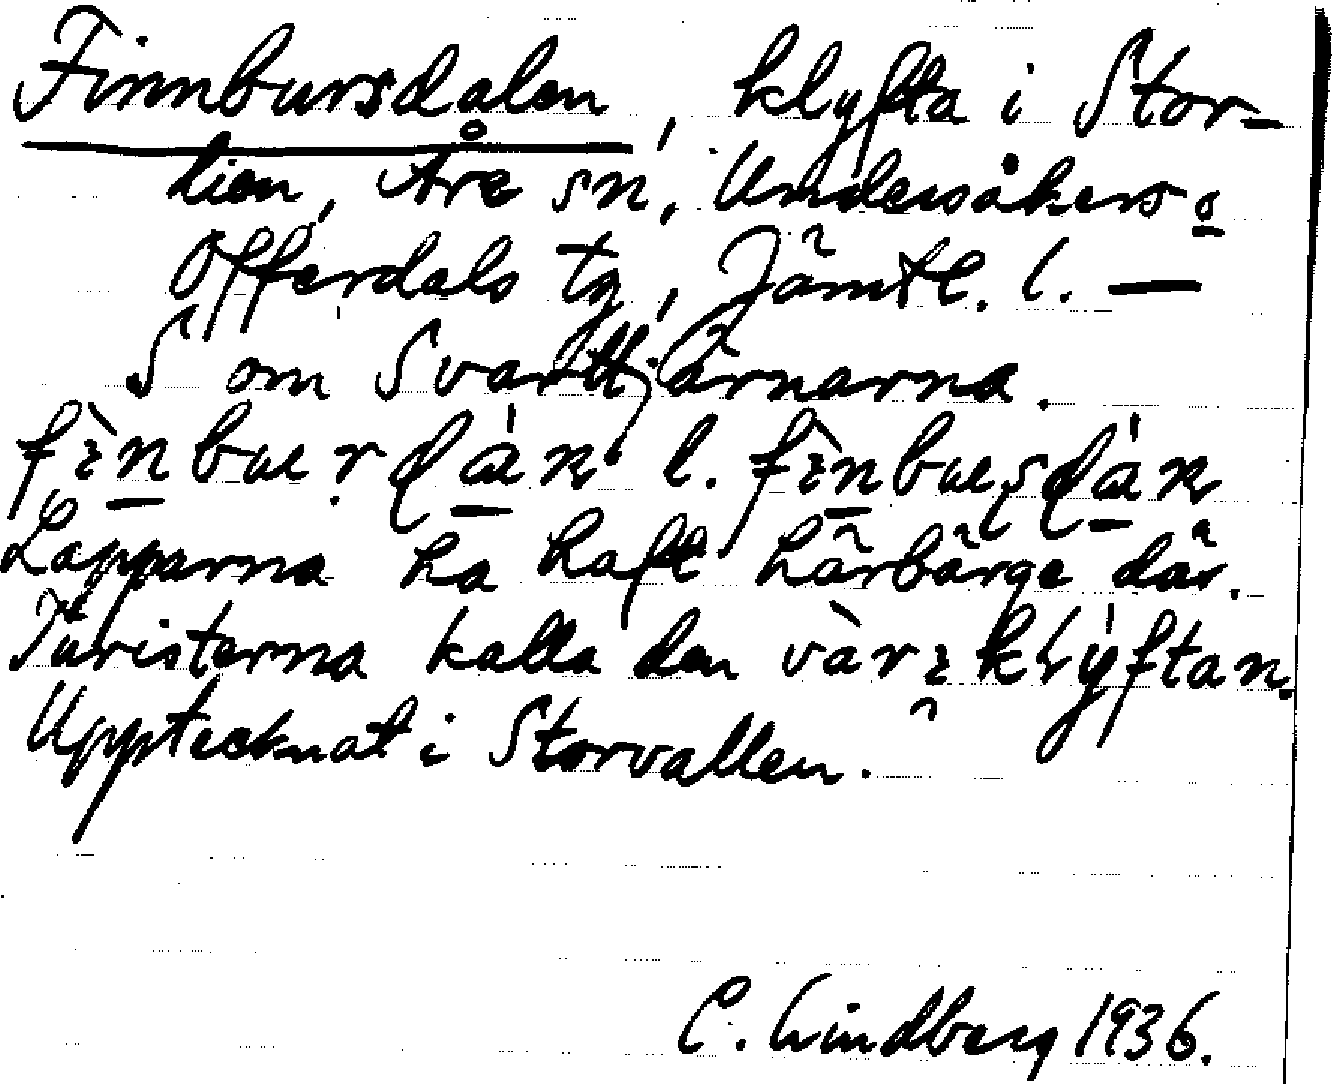 Finnbursdalen, klyfta i Stor-
lien, Åre sn, Undersåkers o
Offerdals tg, Jämtl. l. —
S om Svarttjärnarna.
l.
Lapparna ha haft härbärge där.
Turisterna kalla den
Upptecknat i Storvallen.
C. Lindberg 1936.